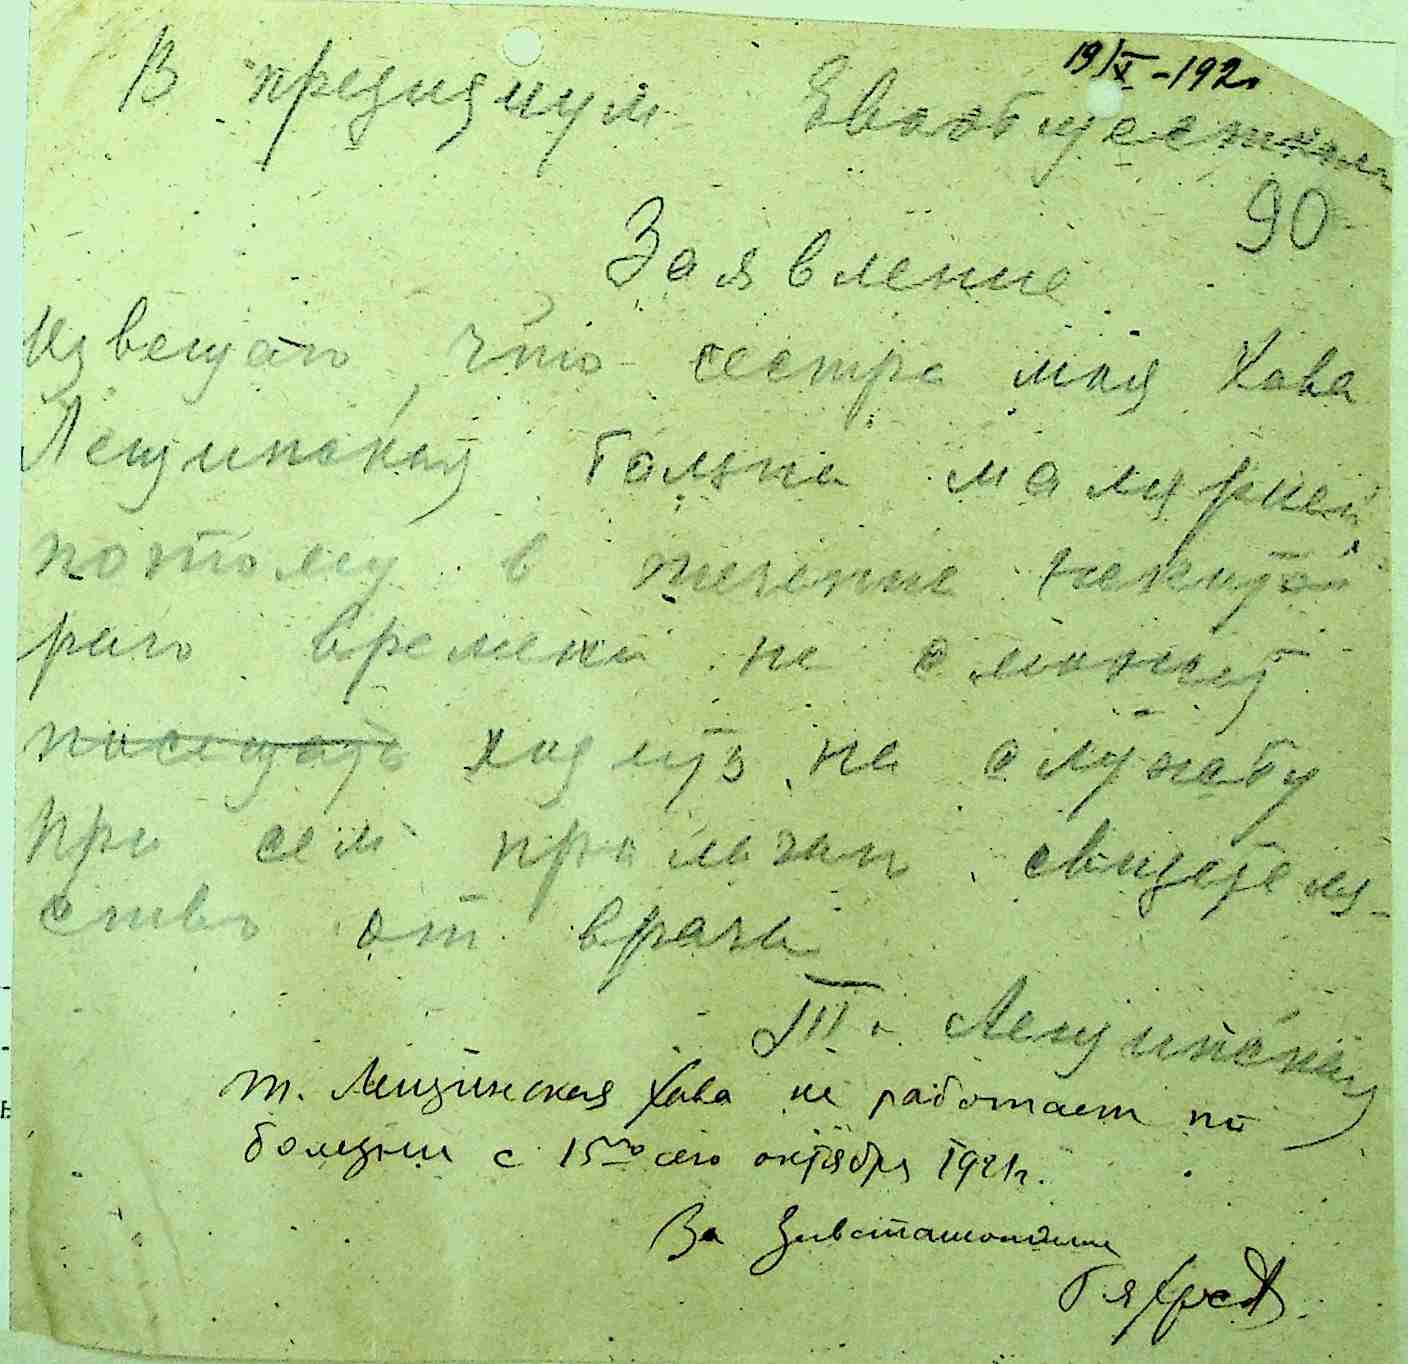 19/X-192
В президиум Евообщесткома
90
Заявление
Извещаю, что сестра моя Хава
Лещинская больна малярией
потому в течение некото
рого времени не сможет
посещать ходить на службу
При сем прилагаю свидетель-
ство от врача
Ш. Лещинская
т. Лещинская Хава не работает по
болезни с 15го сего октября 1921г.
За